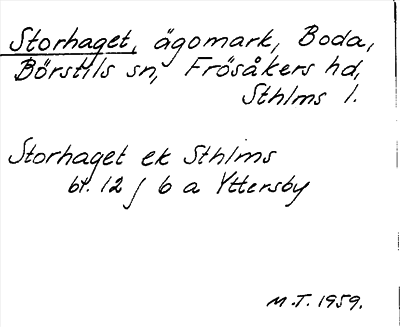 Storhaget, ägomark, Boda,
Börstils sn, Frösåkers hd,
Sthlms l.
Storhaget ek Sthlms
bt. 12 f 6 a Yttersby
M.T. 1959.